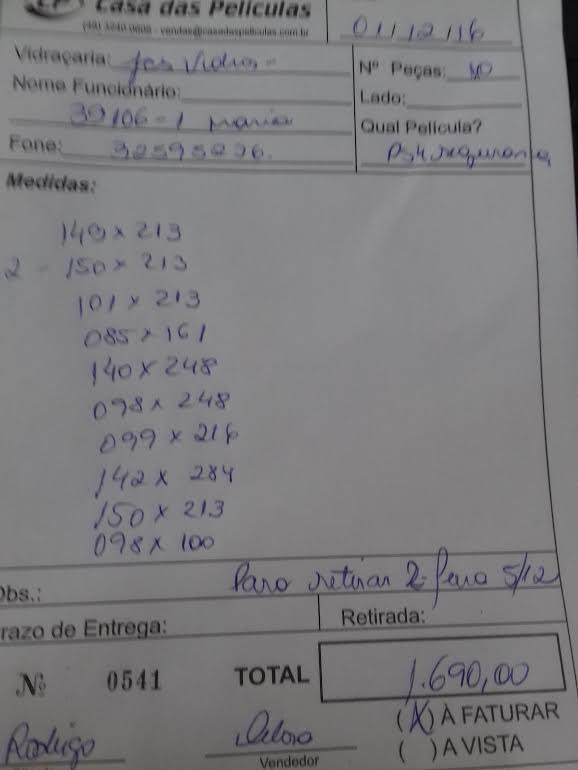 Casa das Películas
(48) 3240 0808 - vendas@casadaspeliculas.com.br
01/12/16
Vidraçaria: Vidros
Nº Peças: 10
Nome Funcionário:
Lado:
39106-1 Maria
Qual Película?
Fone:
PS4 segurança
Medidas:
149 x 213
2 - 150 x 213
101 x 213
085 x 161
140 x 248
098 x 248
099 x 216
142 x 284
150 x 213
098 x 100
Obs.: Para retirar 2ª feira 5/12
razo de Entrega:
Retirada:
Nº 0541 TOTAL 1.690,00
(X) À FATURAR
Rodrigo
( ) A VISTA
Vendedor